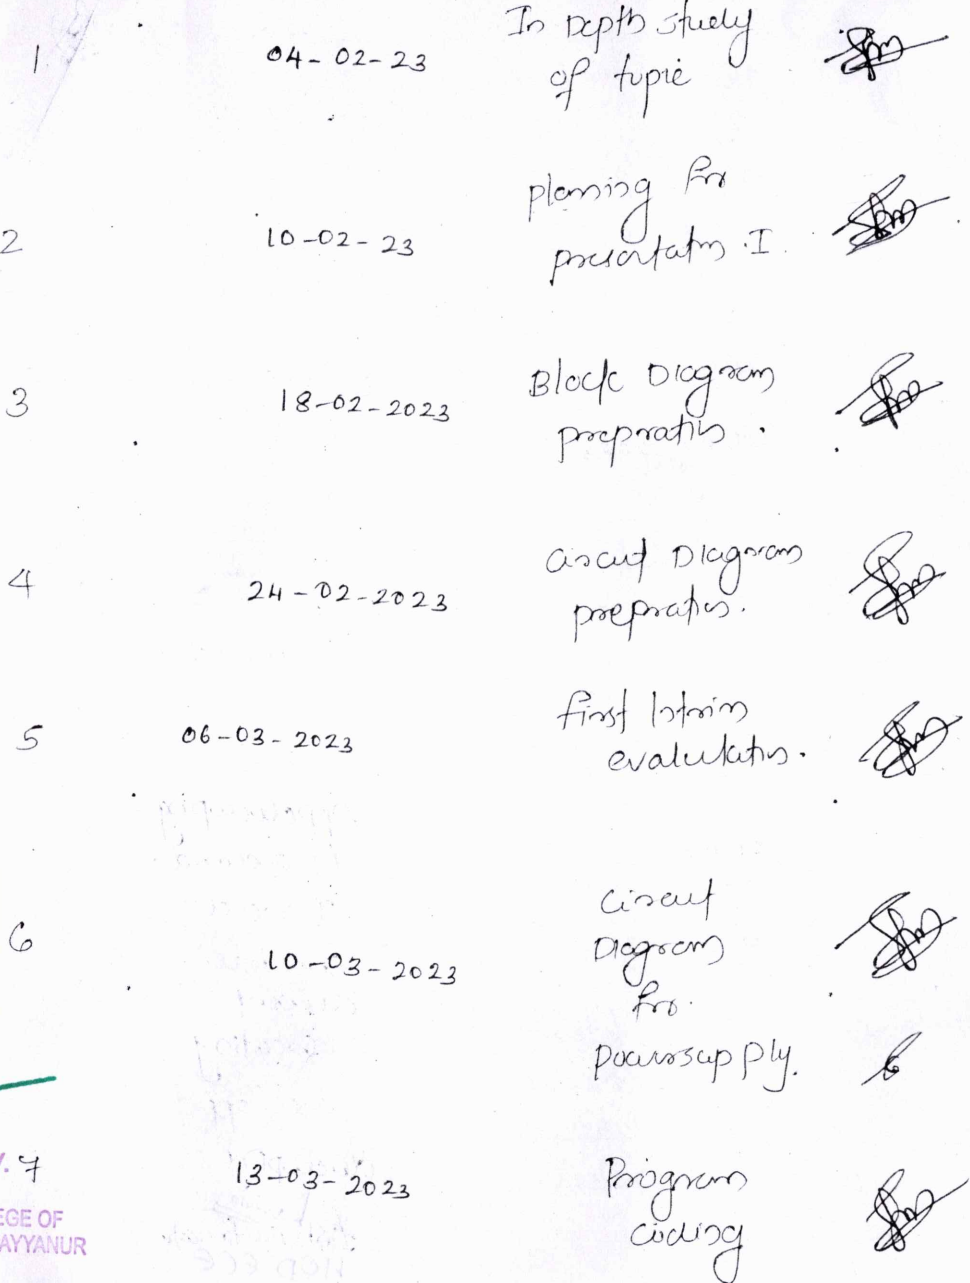 1 04-02-23 In Depth study
of topic
2 10-02-23 planning for
presentation I.
3 18-02-2023 Block Diagram
prepration.
4 24-02-2023 circut Diagram
prepration.
5 06-03-2023 first Interim
evalukation.
6 10-03-2023 circut
Diagram
for.
powersupply.
7 13-03-2023 Program
coding
EGE OF
AYYANUR